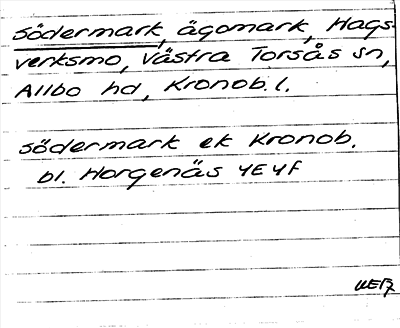 Södermark, ägomark, Hags-
verksmo, Västra Torsås sn,
Allbo hd, Kronob. l.
Södermark ek Kronob.
bl. Horgenäs 4E4f